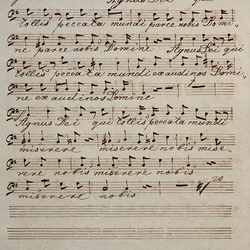 Agnus Dei qui
tollis peccata mundi parce nobis Domi,
ne parce nobis Domine Agnus Dei qui
tollis peccata mundi exaudi nos Domi,
ne exaudi nos Domine
Agnus Dei qui tollis peccata mundi
miserere miserere nobis mise,
rere nobis miserere nobis
miserere nobis